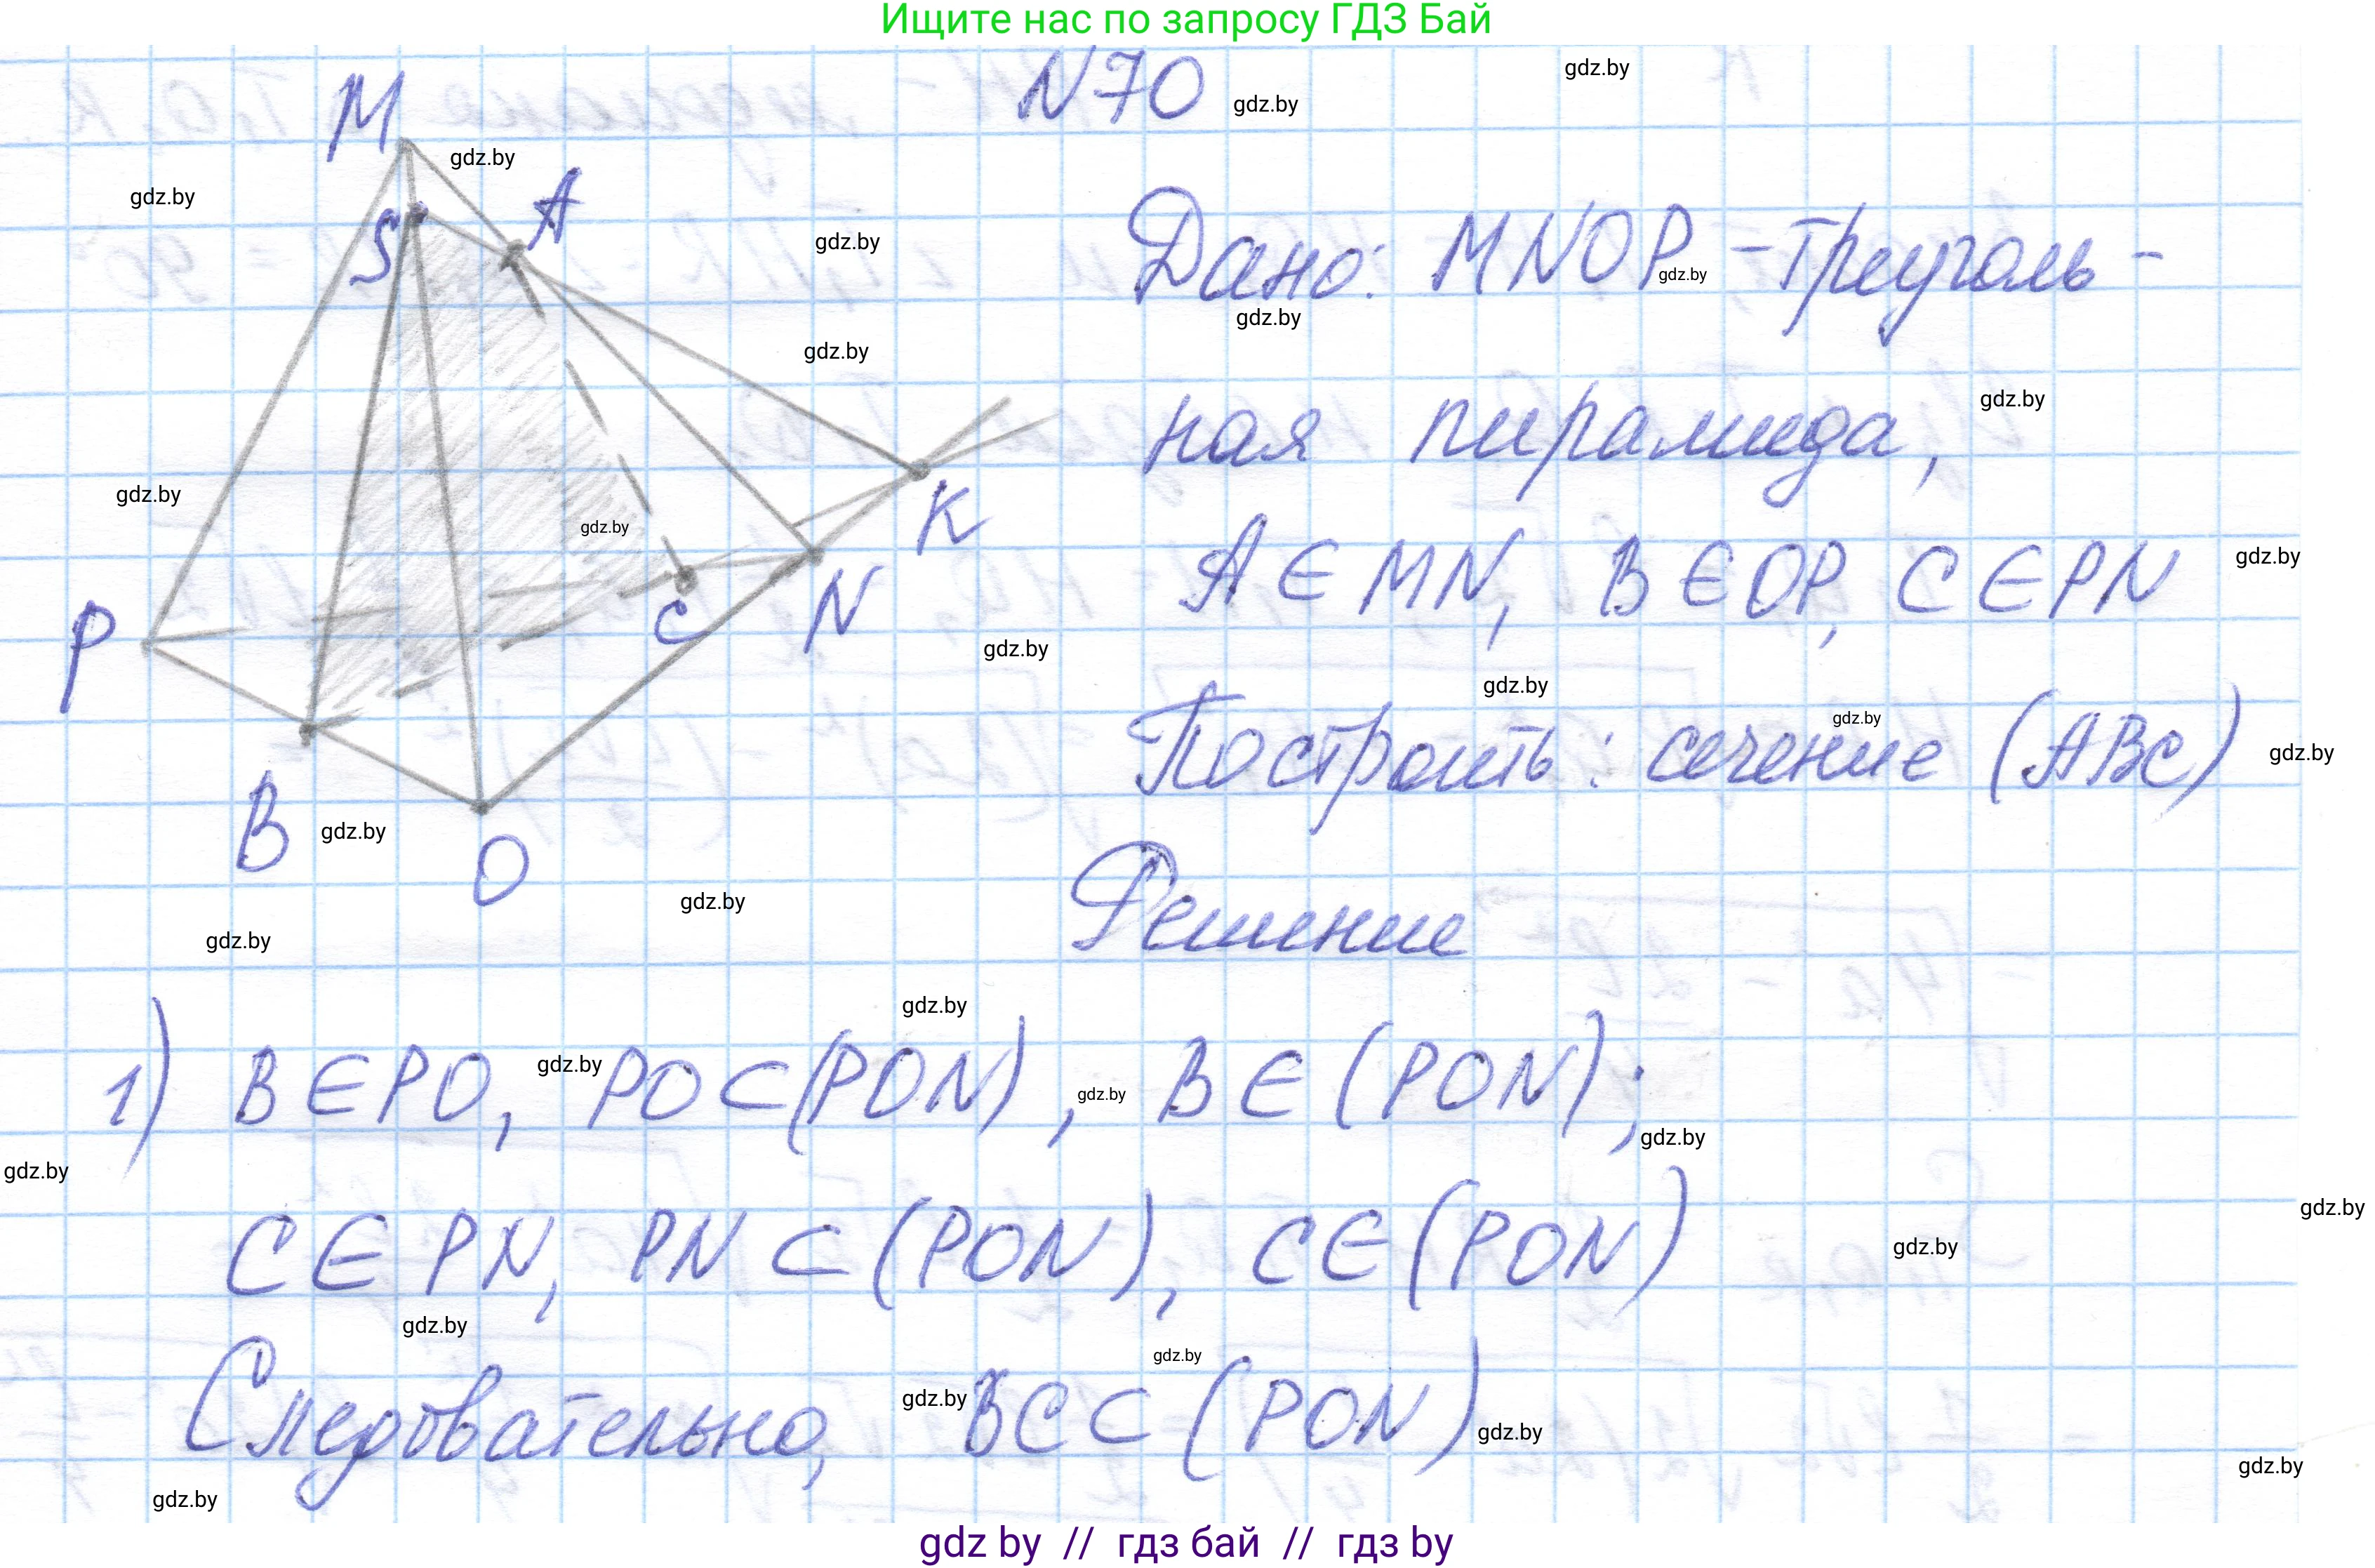 Ищите нас по запросу ГДЗ Бай
N70
gdz.by
gdz.by
M
gdz.by
A
gdz.by
S
gdz.by
Дано: MNOP - треуголь-
gdz.by
gdz.by
gdz.by
ная пирамида,
gdz.by
gdz.by
gdz.by
K
A ∈ MN, B ∈ OP, C ∈ PN
gdz.by
P
C
N
gdz.by
gdz.by
Построить: сечение (ABC)
gdz.by
gdz.by
B
gdz.by
O
gdz.by
gdz.by
Решение
gdz.by
1) B ∈ PO, PO ⊂ (PON), B ∈ (PON);
gdz.by
gdz.by
gdz.by
gdz.by
C ∈ PN, PN ⊂ (PON), C ∈ (PON)
gdz.by
gdz.by
gdz.by
Следовательно, BC ⊂ (PON)
gdz.by
gdz.by
gdz.by
gdz.by
gdz.by
gdz by // гдз бай // гдз by